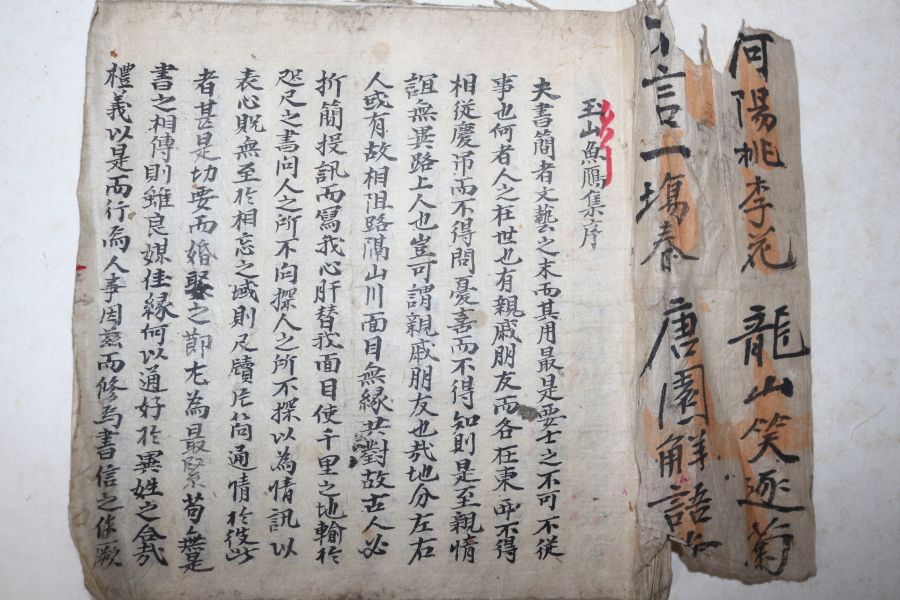 何陽桃李花 龍山笑逐菊
言一塲春 唐園解語
玉山魚鴈集序
夫書簡者文藝之末而其用最是要士之不可不從
事也何者人之在世也有親戚朋友而各在東西不得
相從慶吊而不得問憂喜而不得知則是至親情
誼無異路上人也豈可謂親戚朋友也哉地分左右
人或有故相阻路隔山川面目無緣共對故古人必
折簡授訊而寫我心肝替我面目使千里之地輸於
咫尺之書問人之所不問探人之所不探以為情訊以
表心貺無至於相忘之域則尺牘片簡通情於彼此
者甚是切要而婚娶之節尤為最緊苟無是
書之相傳則雖良媒佳緣何以通好於異姓之合哉
禮義以是而行焉人事因玆而修焉書信之作厥